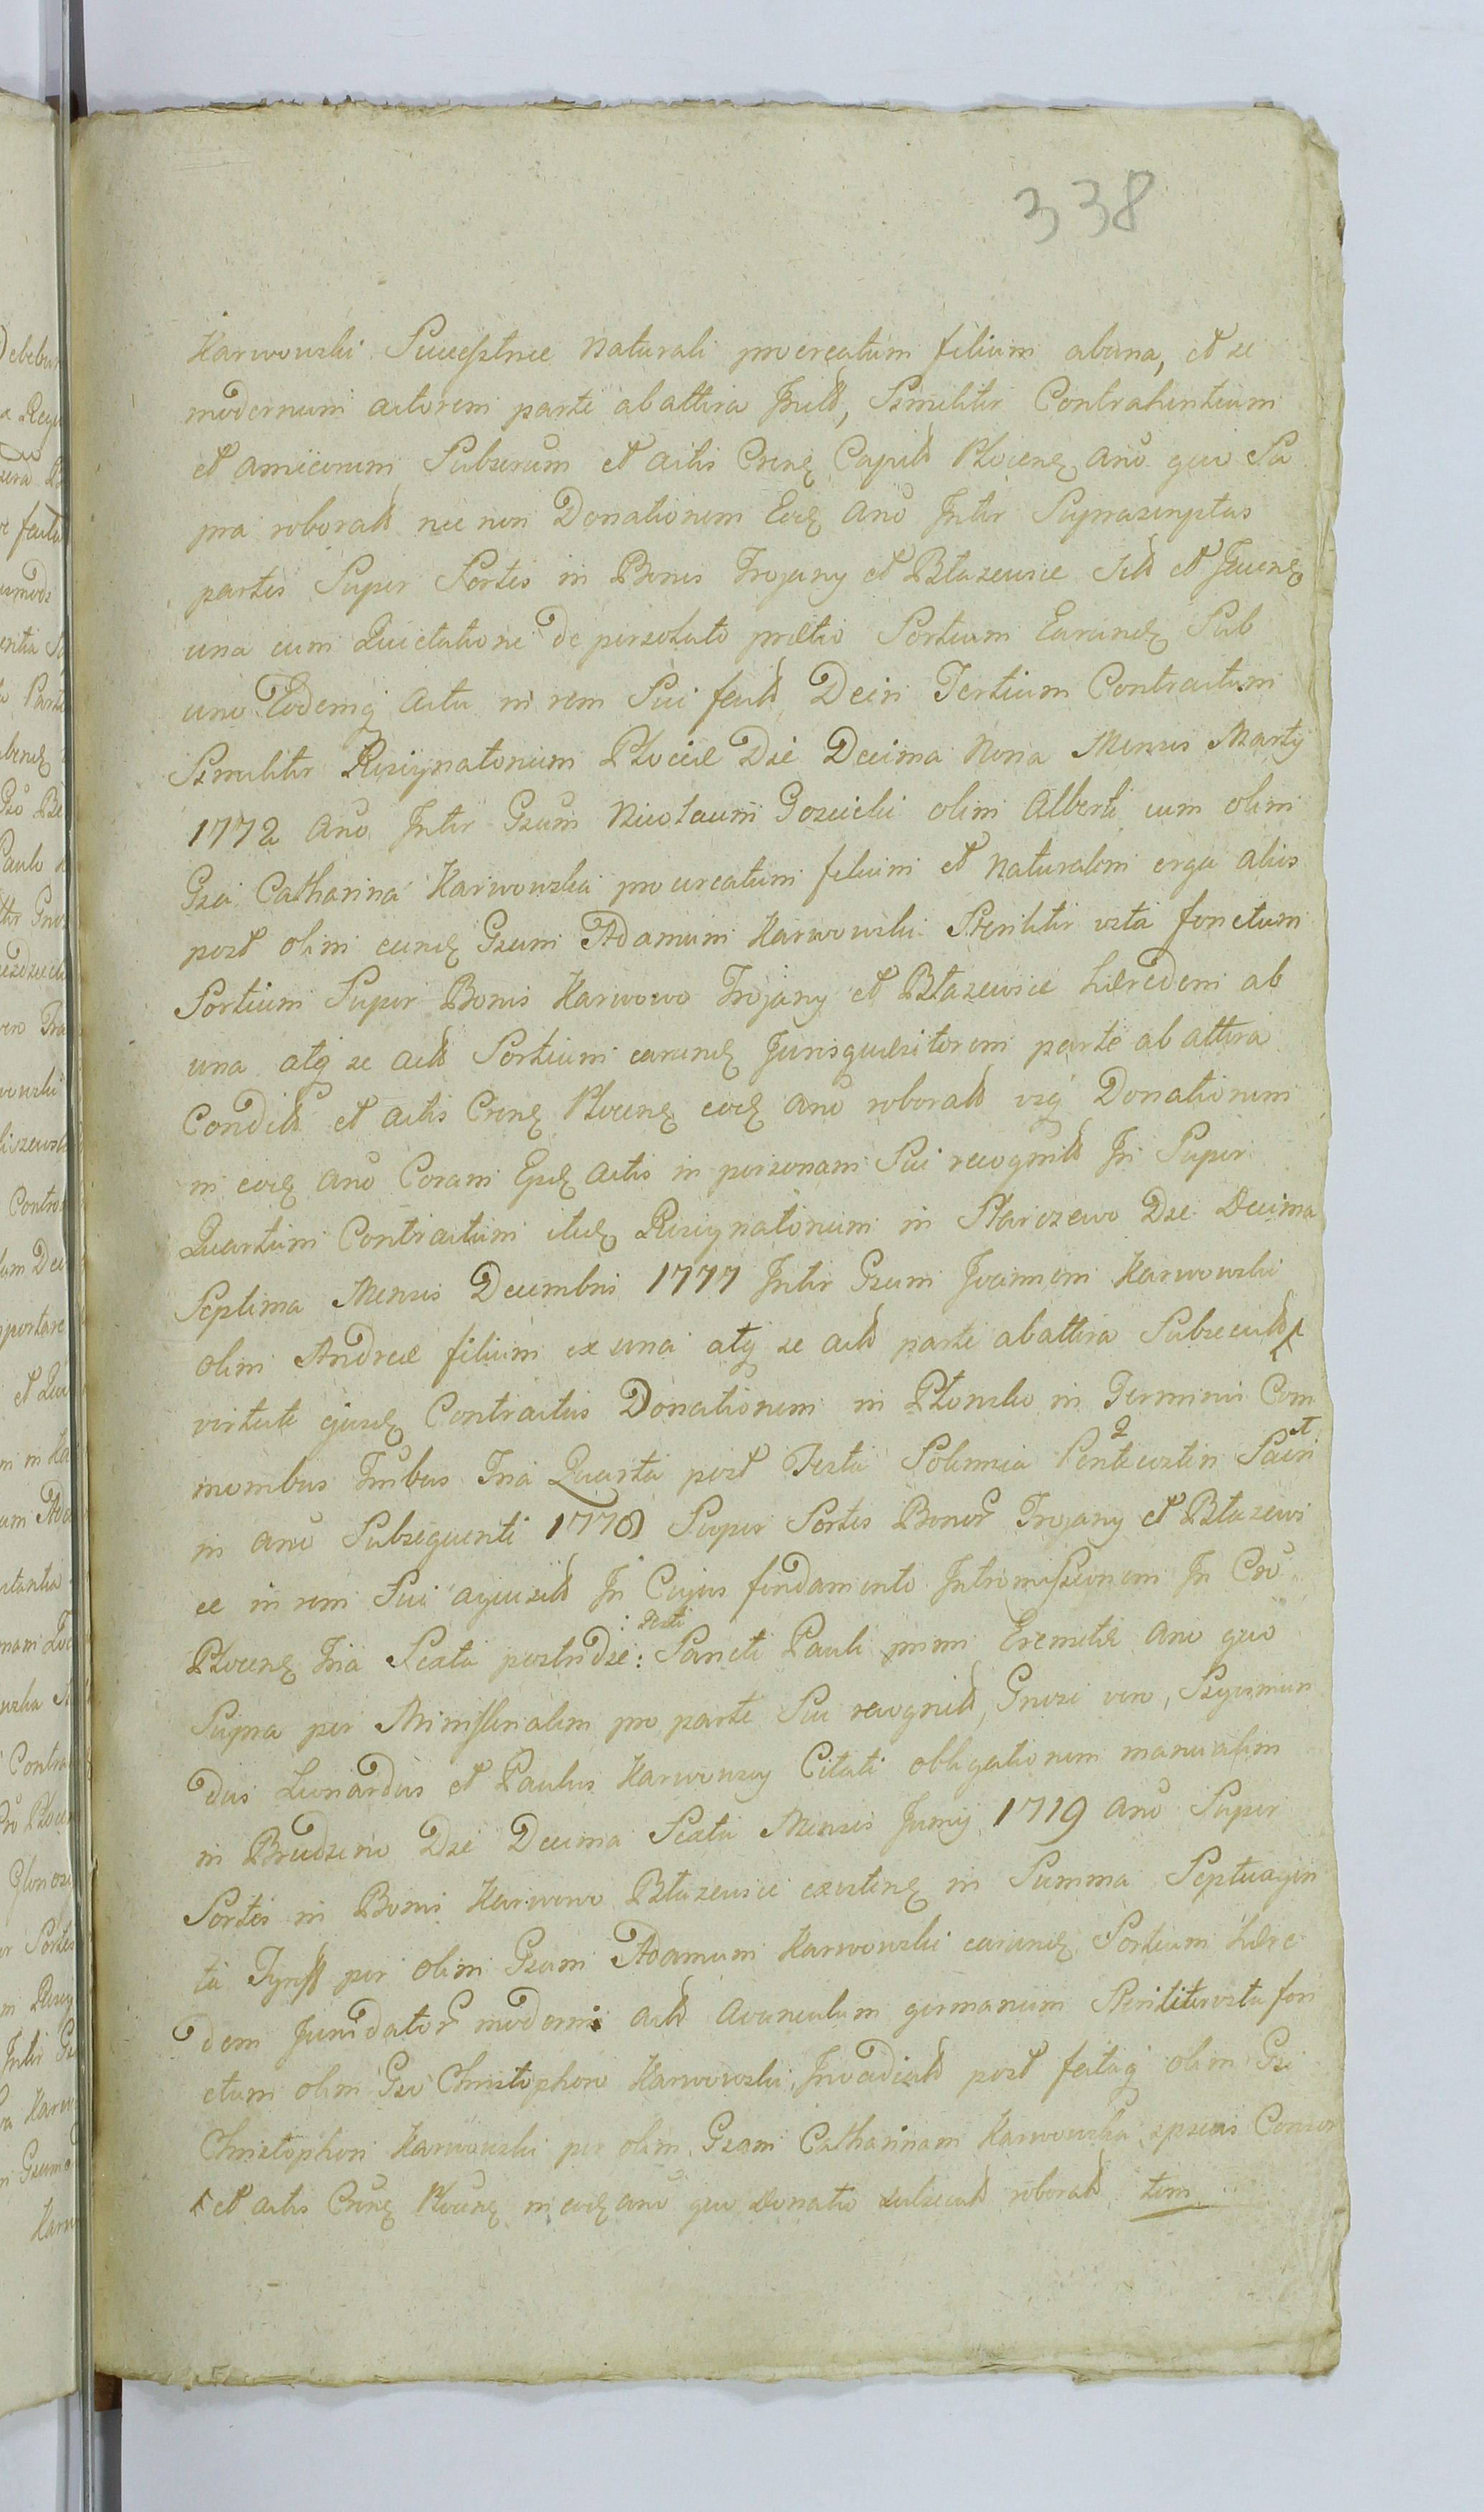 338
Karwowski Successtrice naturali procreatum filium abuna, et se
modernum actorem parte ab altera Initt, Similiter Contrahentium
et amicorum Subscrum et actis Crenę Capitt Plocenę anō quo Su
pra roboratt nec non Donationem Eodę anō Inter Suprascriptas
partes Super Sortes in Bonis Trojany et Błazewice
una cum Quietatione de persoluto praetio Sortium Earundę Sub
uno Eodemq actu in rem Sui factt Dein Tertium Contractum
Similiter Resignatorium Plociae Die Decima Nona Mensis Marty
1772 anō Inter Gsum Nicolaum Gozicki olim Alberti cum olim
Gsa Catharina Karwowska procreatum filium et naturalem erga alios
post olim eundę Gsum Adamum Karwowski Steriliter vita functum
Sortium Super Bonis Karwowo Trojany et Błazewice haeredem ab
una atq se actt Sortium earundę Jurisquaesitorem parte ab altera
Conditt et actis Crenę Plocenę eodę anō roboratt vsq Donationem
in eodę anō Coram Ijsdę actis in personam Sui recognitt In Super
Quartum Contractum itidę Resignatorium in Starozewo Die Decima
Septima Mensis Decembris 1777 Inter Gsum Joannem Karwowski
olim Andreae filium ex una atq se actt parte ab altera Subsecutt
virtute ejusdę Contractus Donationem in Płonsko in Terminis Com
munibus Tribus Fria Quarta post Festa Solennia Pentecosten Sacri
in anō Subsequenti 1778 Super Sortes Bonor Trojany et Błazewi
ce in rem Sui aquisitt In Cujus fundamento Intromissionem In Crō
Plocenę Fria Sexta postridie : Festi : Sancti Pauli primi Eremitae anō quo
Supra per Ministerialem pro parte Sui recognitt, Gnosi vero, Sigismun
dus Leonardus et Paulus Karwowscy Citati obligationem manualem
in Brudzeno Die Decima Sexta Mensis Junij 1719 anō Super
Sortes in Bonis Karwowo Błazewice existenę in Summa Septuagin
ta Tynff per olim Gsum Adamum Karwowski earundę Sortium haere
dem Juridator moderni actt avunculum germanum Steriliter vita fun
ctum olim Gsō Christophoro Karwowski, Invadiatt post fataq olim Gsi
Christophori Karwowski per olim Gsam Catharinam Karwowska ipsius Consor
et actis Crenę Plocenę in eodę anō quo Donatio subsecutt roboratt tem